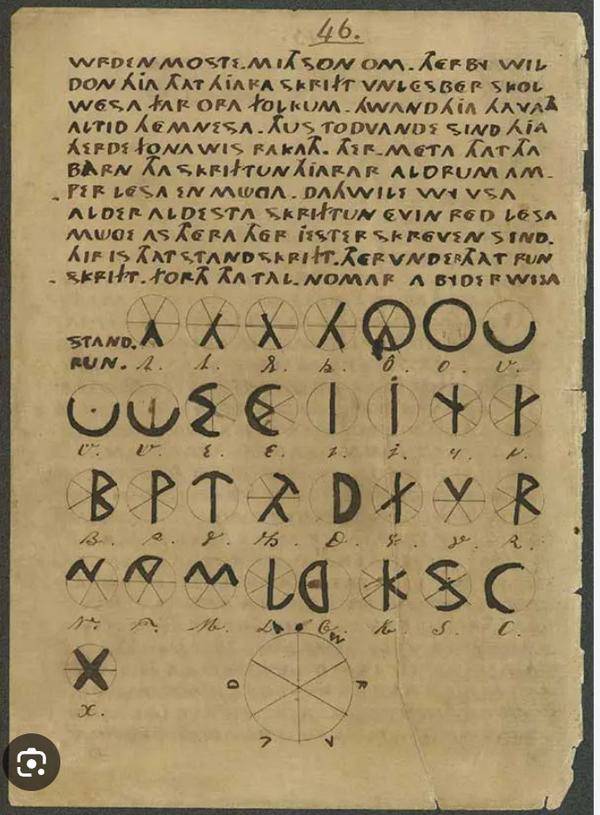 46.
WRDEN MOSTE. MITH SON OM. THERBY WIL
DON HIA THAT HIARA SKRIFT VNLESBER SKOL
WESA FAR ORA FOLKUM. HWAND HIA HAVATH
ALTID HEMNESA. THUS TODVANDE SIND HIA
HERDE FON A WIS RAKATH. THER. META THAT THA
BARN THA SKRIFTUN HIARAR ALDRUM AM-
PER LESA EN MUGA. DAHWILE WY VSA
ALDER ALDESTA SKRIFTUN EVIN RED LESA
MUGE AS THERA THER JESTER SKREVEN SIND.
HIR IS THAT STAND SKRIFT. THERVNDER THAT RUN
SKRIFT. FORTH THA TAL. NOMAR A BYDER WISA
STAND.
RUN. A. A. O. O. V.
V. V. E. E. I. J. Y.
B. P. T. TH. D. F. V. R.
N. M. L. K. S. C.
X.